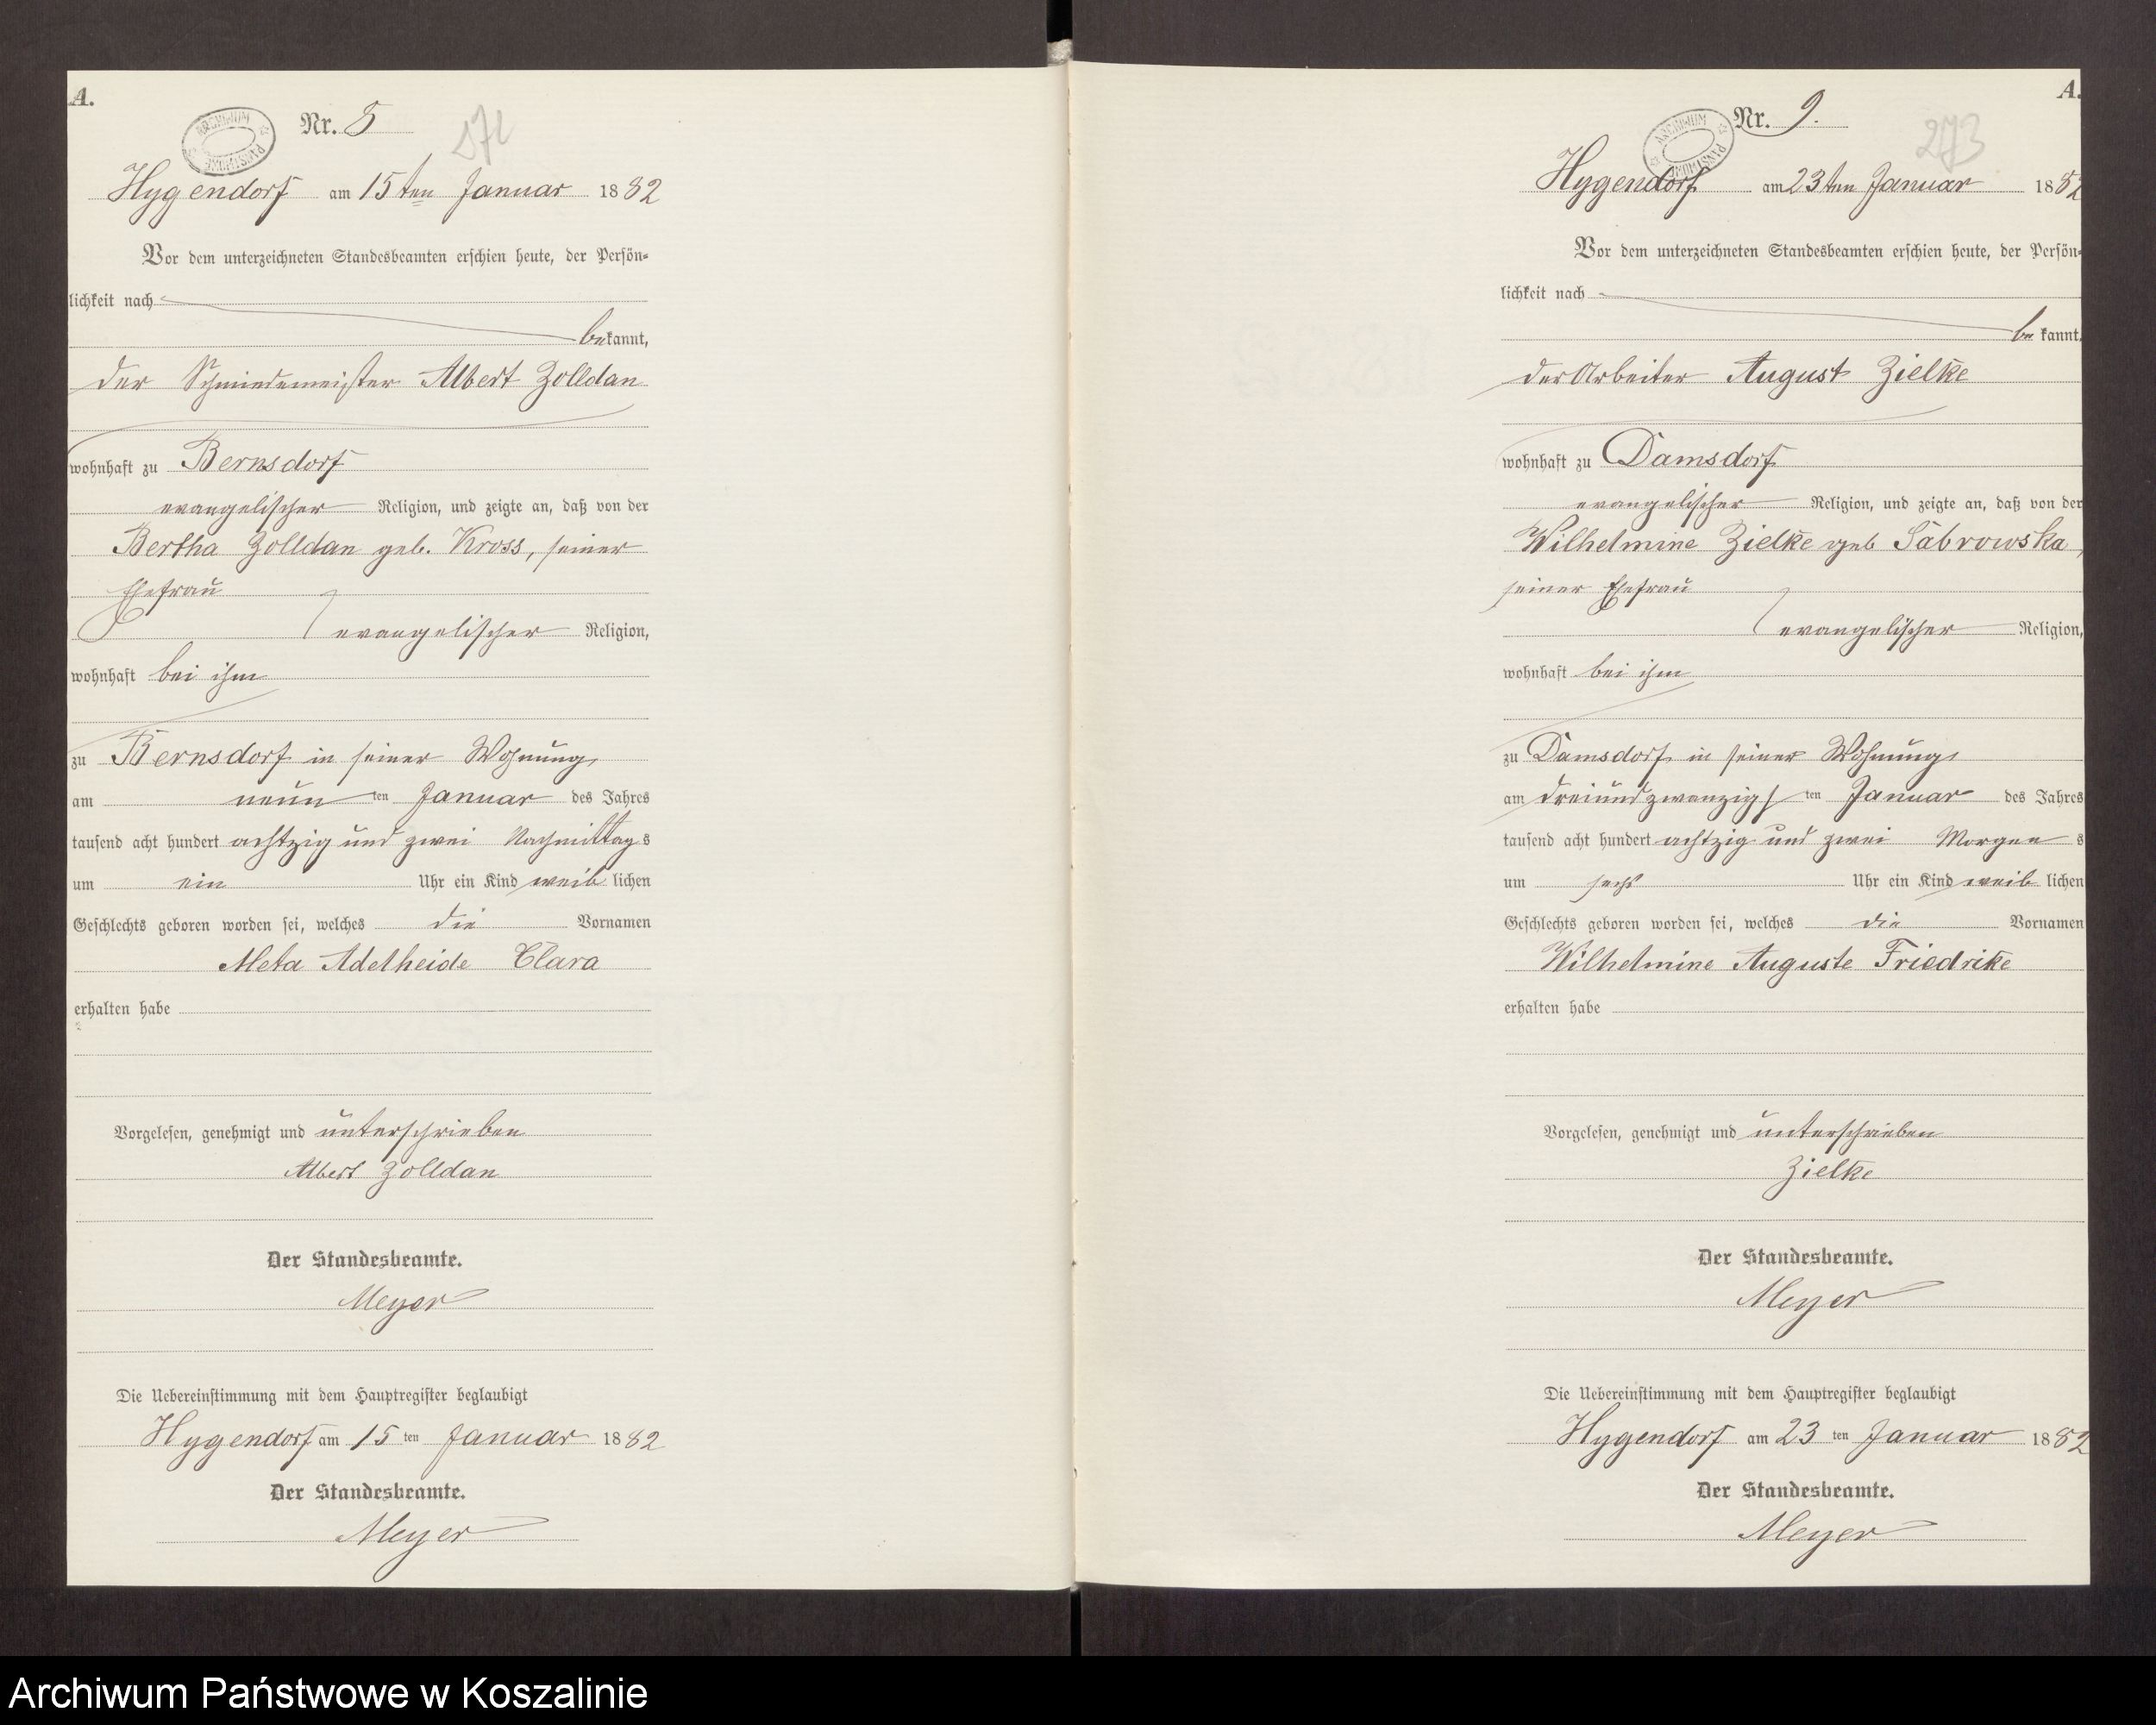 A.
Nr. 8
272
ARCHIWUM PAŃSTWOWE
Hygendorf am 15ten Januar 1882
Vor dem unterzeichneten Standesbeamten erschien heute, der Persön-
lichkeit nach
bekannt,
der Schmiedemeister Albert Zolldan
wohnhaft zu Bernsdorf
evangelischer Religion, und zeigte an, daß von der
Bertha Zolldan geb. Kross, seiner
Ehefrau
evangelischer Religion,
wohnhaft bei ihm
zu Bernsdorf in seiner Wohnung
am neun ten Januar des Jahres
tausend acht hundert achtzig und zwei Nachmittag s
um ein Uhr ein Kind weib lichen
Geschlechts geboren worden sei, welches die Vornamen
Meta Adelheide Clara
erhalten habe
Vorgelesen, genehmigt und unterschrieben
Albert Zolldan
Der Standesbeamte.
Meyer
Die Uebereinstimmung mit dem Hauptregister beglaubigt
Hygendorf am 15 ten Januar 1882
Der Standesbeamte.
Meyer
A.
Nr. 9.
273
ARCHIWUM PAŃSTWOWE
Hygendorf am 23ten Januar 1882
Vor dem unterzeichneten Standesbeamten erschien heute, der Persön-
lichkeit nach
be kannt,
der Arbeiter August Zielke
wohnhaft zu Damsdorf
evangelischer Religion, und zeigte an, daß von der
Wilhelmine Zielke geb Sabrowska,
seiner Ehefrau
evangelischer Religion,
wohnhaft bei ihm
zu Damsdorf in seiner Wohnung
am dreiundzwanzigs ten Januar des Jahres
tausend acht hundert achtzig und zwei Morgen s
um sechs Uhr ein Kind weib lichen
Geschlechts geboren worden sei, welches die Vornamen
Wilhelmine Auguste Friedrike
erhalten habe
Vorgelesen, genehmigt und unterschrieben
Zielke
Der Standesbeamte.
Meyer
Die Uebereinstimmung mit dem Hauptregister beglaubigt
Hygendorf am 23 ten Januar 1882
Der Standesbeamte.
Meyer
Archiwum Państwowe w Koszalinie